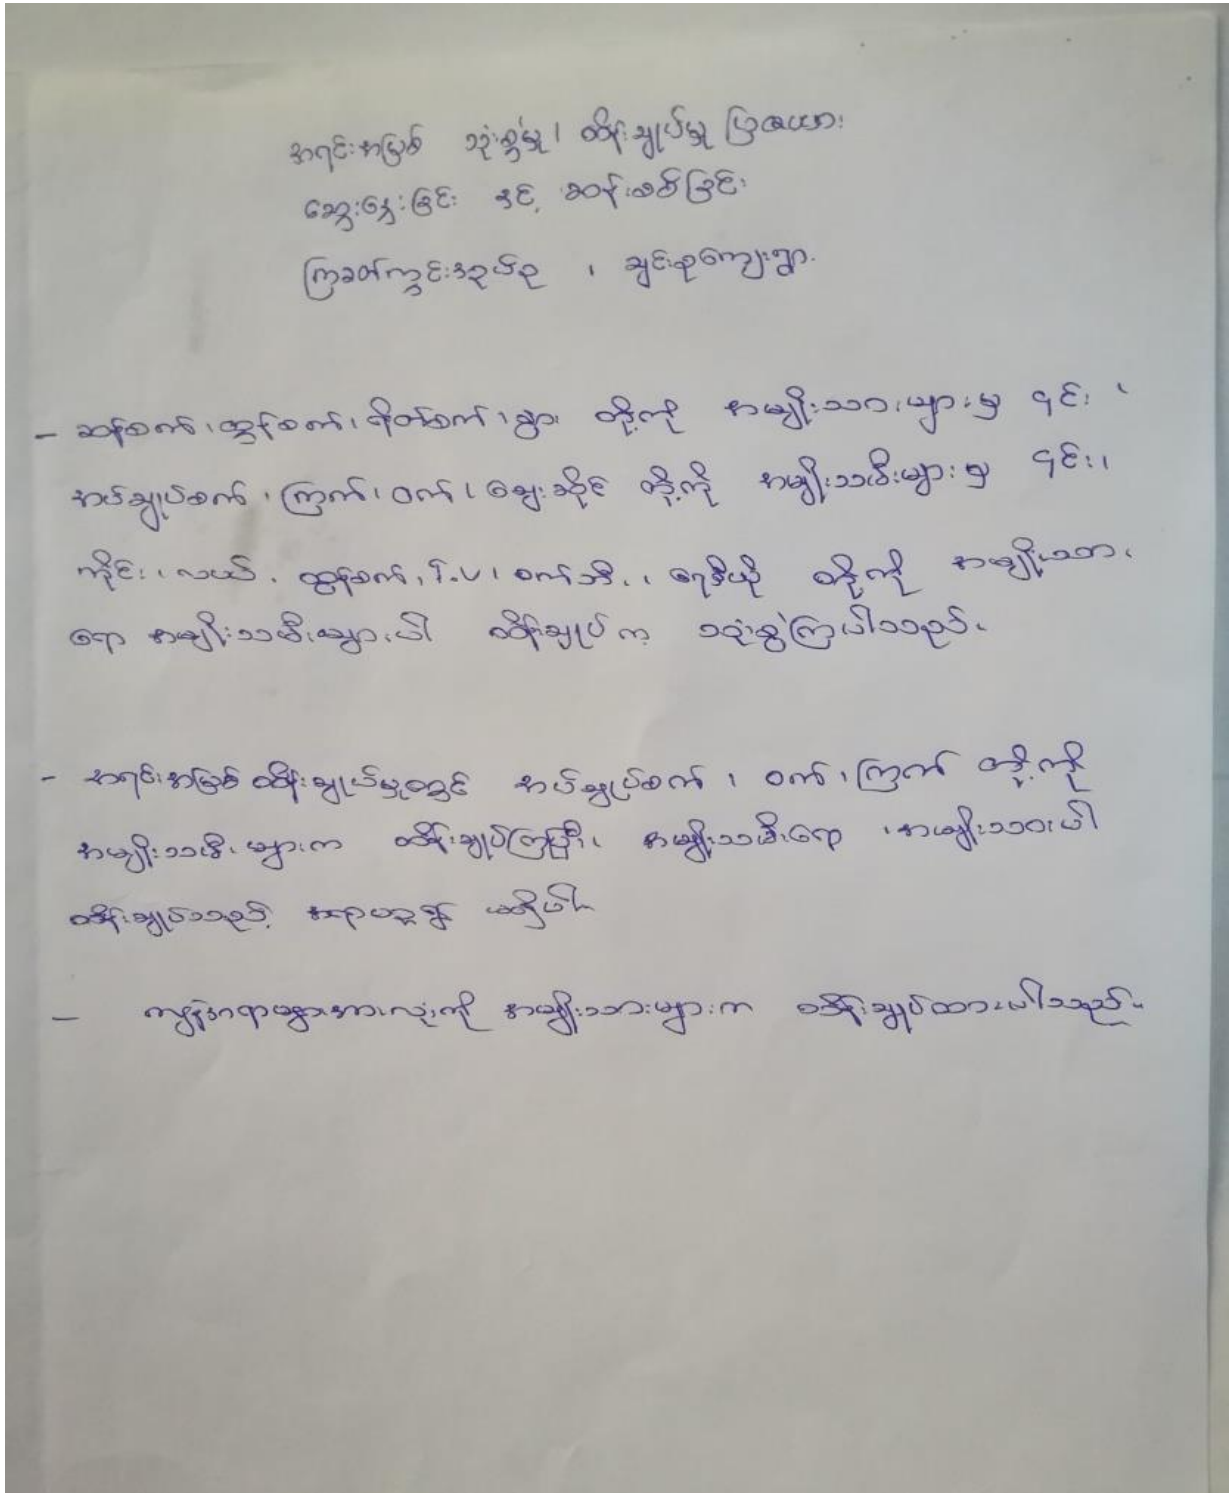 အရင်းအမြစ် သုံးစွဲမှု၊ ထိန်းချုပ်မှု ပြဇယား
ဆွေးနွေးခြင်း နှင့် ဆန်းစစ်ခြင်း
ကြခတ်ကွင်းဒညင်ဥ ၊ ချင်းစုကျေးရွာ.
- ဆန်စက်၊ ထွန်စက်၊ ရိတ်စက်၊ နွား တို့ကို အမျိုးသားများမှ ၎င်း ၊
အပ်ချုပ်စက်၊ ကြက်၊ ဝက်၊ ဈေးဆိုင် တို့ကို အမျိုးသမီးများမှ ၎င်း၊
ကိုင်း၊ လယ်၊ ထွန်စက်၊ T.V၊ စက်ဘီး၊ ရေဒီယို တို့ကို အမျိုးသား
ရော အမျိုးသမီးများပါ ထိန်းချုပ် ကာ သုံးစွဲကြပါသည်။
- အရင်းအမြစ် ထိန်းချုပ်မှုတွင် အပ်ချုပ်စက် ၊ ဝက်၊ ကြက် တို့ကို
အမျိုးသမီးများက ထိန်းချုပ်ကြပြီး၊ အမျိုးသမီးရော ၊ အမျိုးသားပါ
ထိန်းချုပ်သည့် အရာဟူ၍ မရှိပါ။
- ကျန်အရာများအားလုံးကို အမျိုးသားများက ထိန်းချုပ်ထားပါသည်။